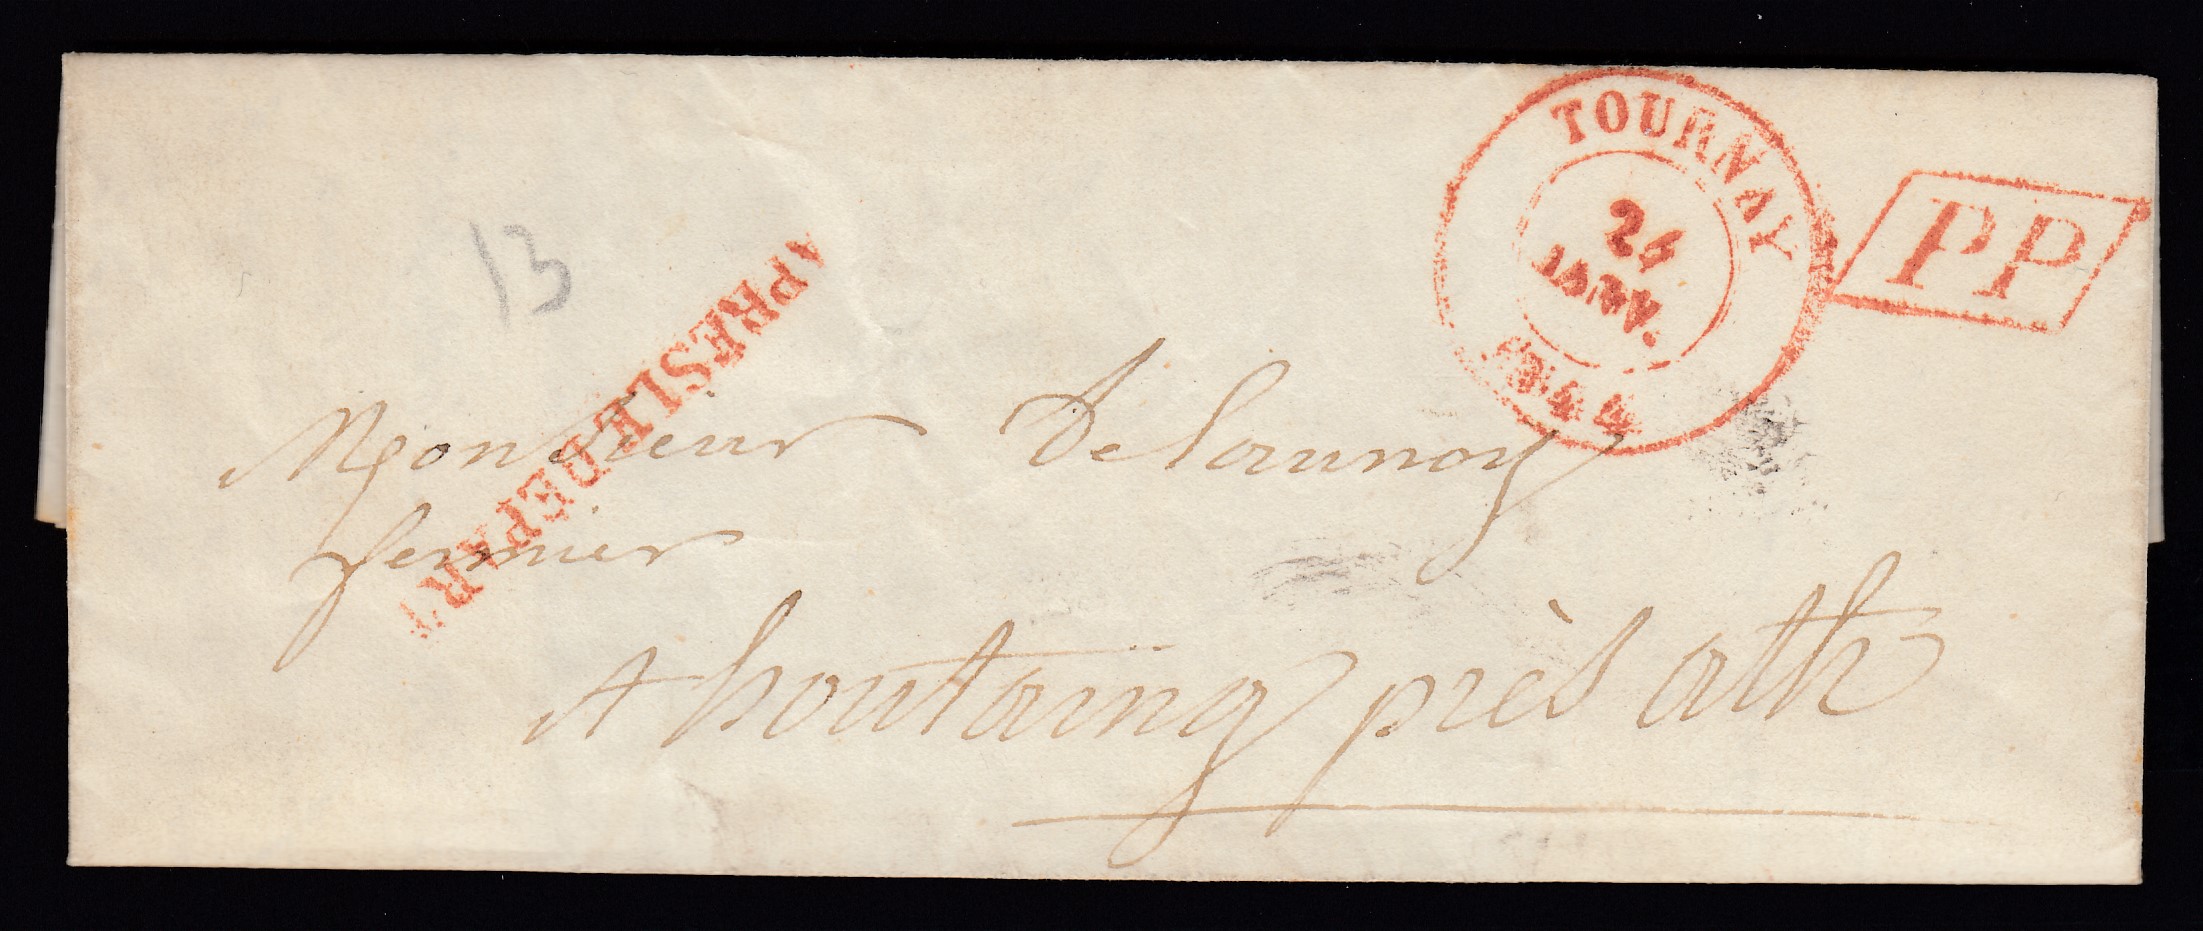 TOURNAY
JANV.
1844
PP
13
APRES LE DÉPART
Monsieur Delaunoy
fermier
A houtaing près ath